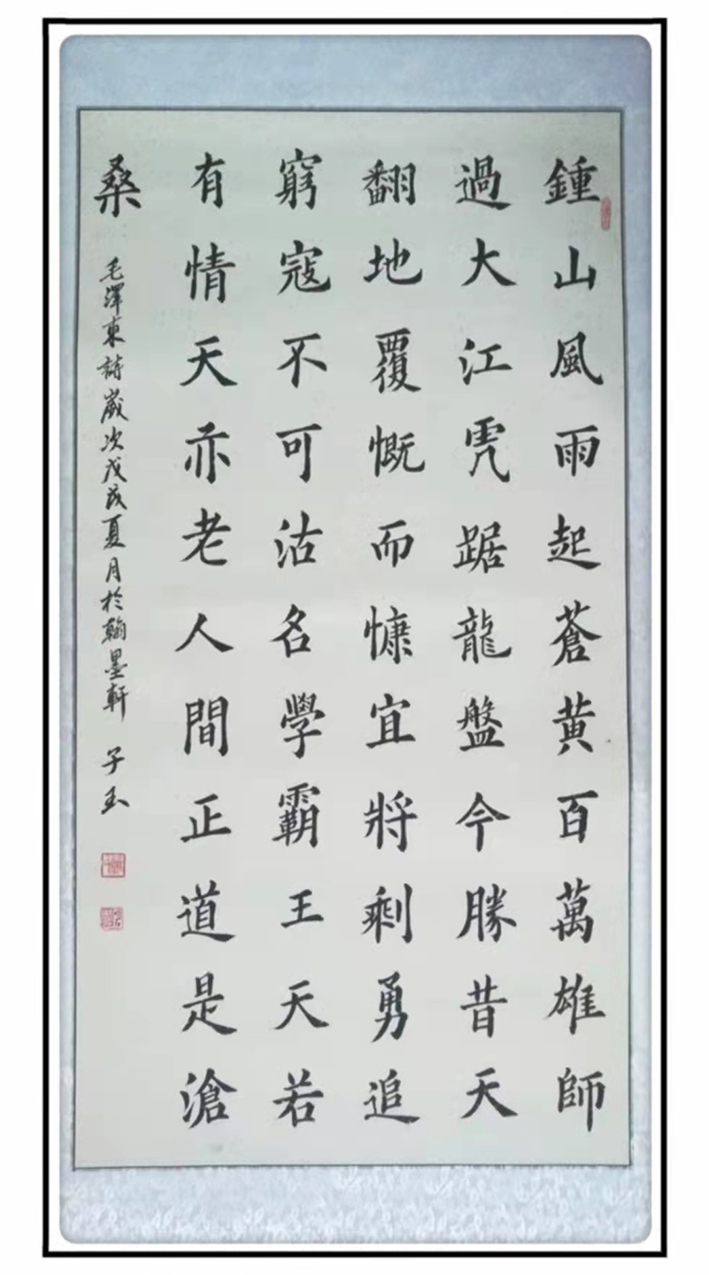 鍾山風雨起蒼黃百萬雄師
過大江虎踞龍盤今勝昔天
翻地覆慨而慷宜將剩勇追
窮寇不可沽名學霸王天若
有情天亦老人間正道是滄
桑
毛澤東詩歲次戊戌夏月於翰墨軒 子玉